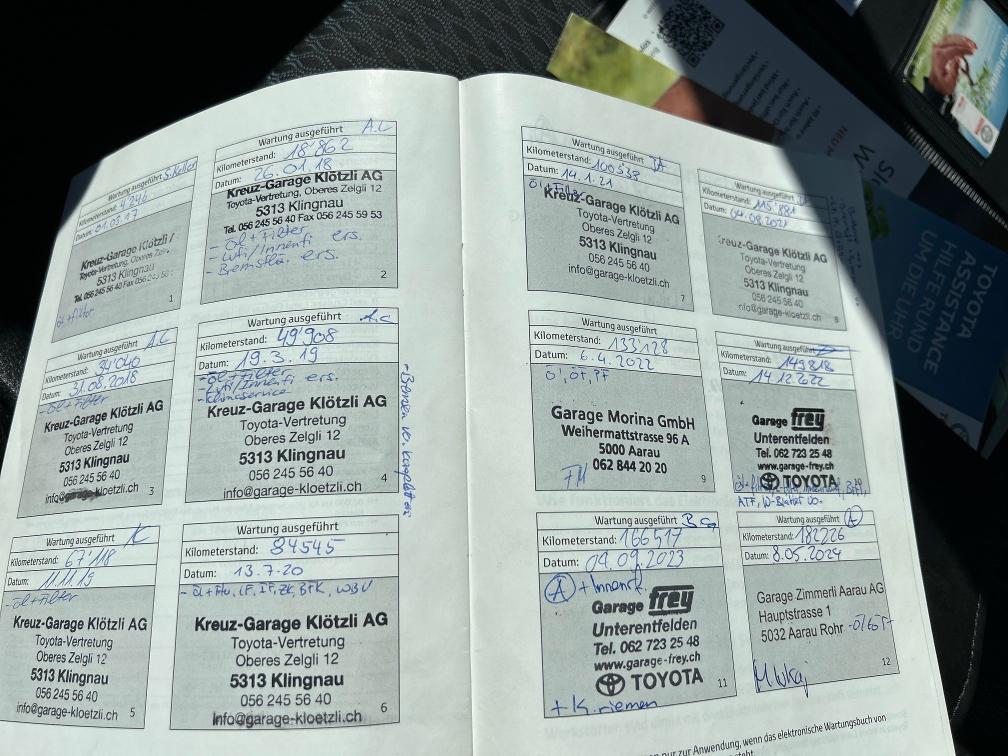 Wartung ausgeführt S. Keller
Kilometerstand: 4246
Datum: 01.03.17
Kreuz-Garage Klötzli
Toyota-Vertretung, Oberes
5313 Klingnau
Tel. 056 245 56 40 Fax 056 245
öl+Filter
1
Wartung ausgeführt A.C
Kilometerstand: 18'862
Datum: 26.01.18
Kreuz-Garage Klötzli AG
Toyota-Vertretung, Oberes Zelgli 12
5313 Klingnau
Tel. 056 245 56 40 Fax 056 245 59 53
- öl + Filter
- Luft/Innenfi ers.
- Bremsflü. ers.
2
Wartung ausgeführt A.C
Kilometerstand: 34'040
Datum: 31.08.2018
- öl + Filter
Kreuz-Garage Klötzli AG
Toyota-Vertretung
Oberes Zelgli 12
5313 Klingnau
056 245 56 40
info@garage-kloetzli.ch
3
Wartung ausgeführt A.C
Kilometerstand: 49'908
Datum: 19.3.19
- öl + Filter
- Luft/Innenfi ers.
- Klimaservice
Kreuz-Garage Klötzli AG
Toyota-Vertretung
Oberes Zelgli 12
5313 Klingnau
056 245 56 40
info@garage-kloetzli.ch
4
- Bremsen vo.
Wartung ausgeführt
Kilometerstand: 67'118
Datum: 11.11.19
- öl + Filter
Kreuz-Garage Klötzli AG
Toyota-Vertretung
Oberes Zelgli 12
5313 Klingnau
056 245 56 40
info@garage-kloetzli.ch
5
Wartung ausgeführt
Kilometerstand: 84545
Datum: 13.7.20
Kreuz-Garage Klötzli AG
Toyota-Vertretung
Oberes Zelgli 12
5313 Klingnau
056 245 56 40
info@garage-kloetzli.ch
6
Wartung ausgeführt
Kilometerstand: 100538
Datum: 14.1.21
Öl+Filter
Kreuz-Garage Klötzli AG
Toyota-Vertretung
Oberes Zelgli 12
5313 Klingnau
056 245 56 40
info@garage-kloetzli.ch
7
Wartung ausgeführt
Kilometerstand: 115'881
Datum: 04.08.2021
Kreuz-Garage Klötzli AG
Toyota-Vertretung
Oberes Zelgli 12
5313 Klingnau
056 245 56 40
info@garage-kloetzli.ch
8
Wartung ausgeführt
Kilometerstand: 133128
Datum: 6.4.2022
Öl, ÖF, PF
Garage Morina GmbH
Weihermattstrasse 96 A
5000 Aarau
062 844 20 20
FM
9
Wartung ausgeführt
Kilometerstand: 149818
Datum: 14.12.2022
Garage frey
Unterentfelden
Tel. 062 723 25 48
www.garage-frey.ch
TOYOTA
10
Wartung ausgeführt
Kilometerstand: 166517
Datum: 04.09.2023
A + Innenf.
Garage frey
Unterentfelden
Tel. 062 723 25 48
www.garage-frey.ch
TOYOTA
11
+ K.riemen
Wartung ausgeführt A
Kilometerstand: 182226
Datum: 8.05.2024
Garage Zimmerli Aarau AG
Hauptstrasse 1
5032 Aarau Rohr
12
nur zur Anwendung, wenn das elektronische Wartungsbuch von
TOYOTA
ASSISTANCE
HILFE RUND
UM DIE UHR